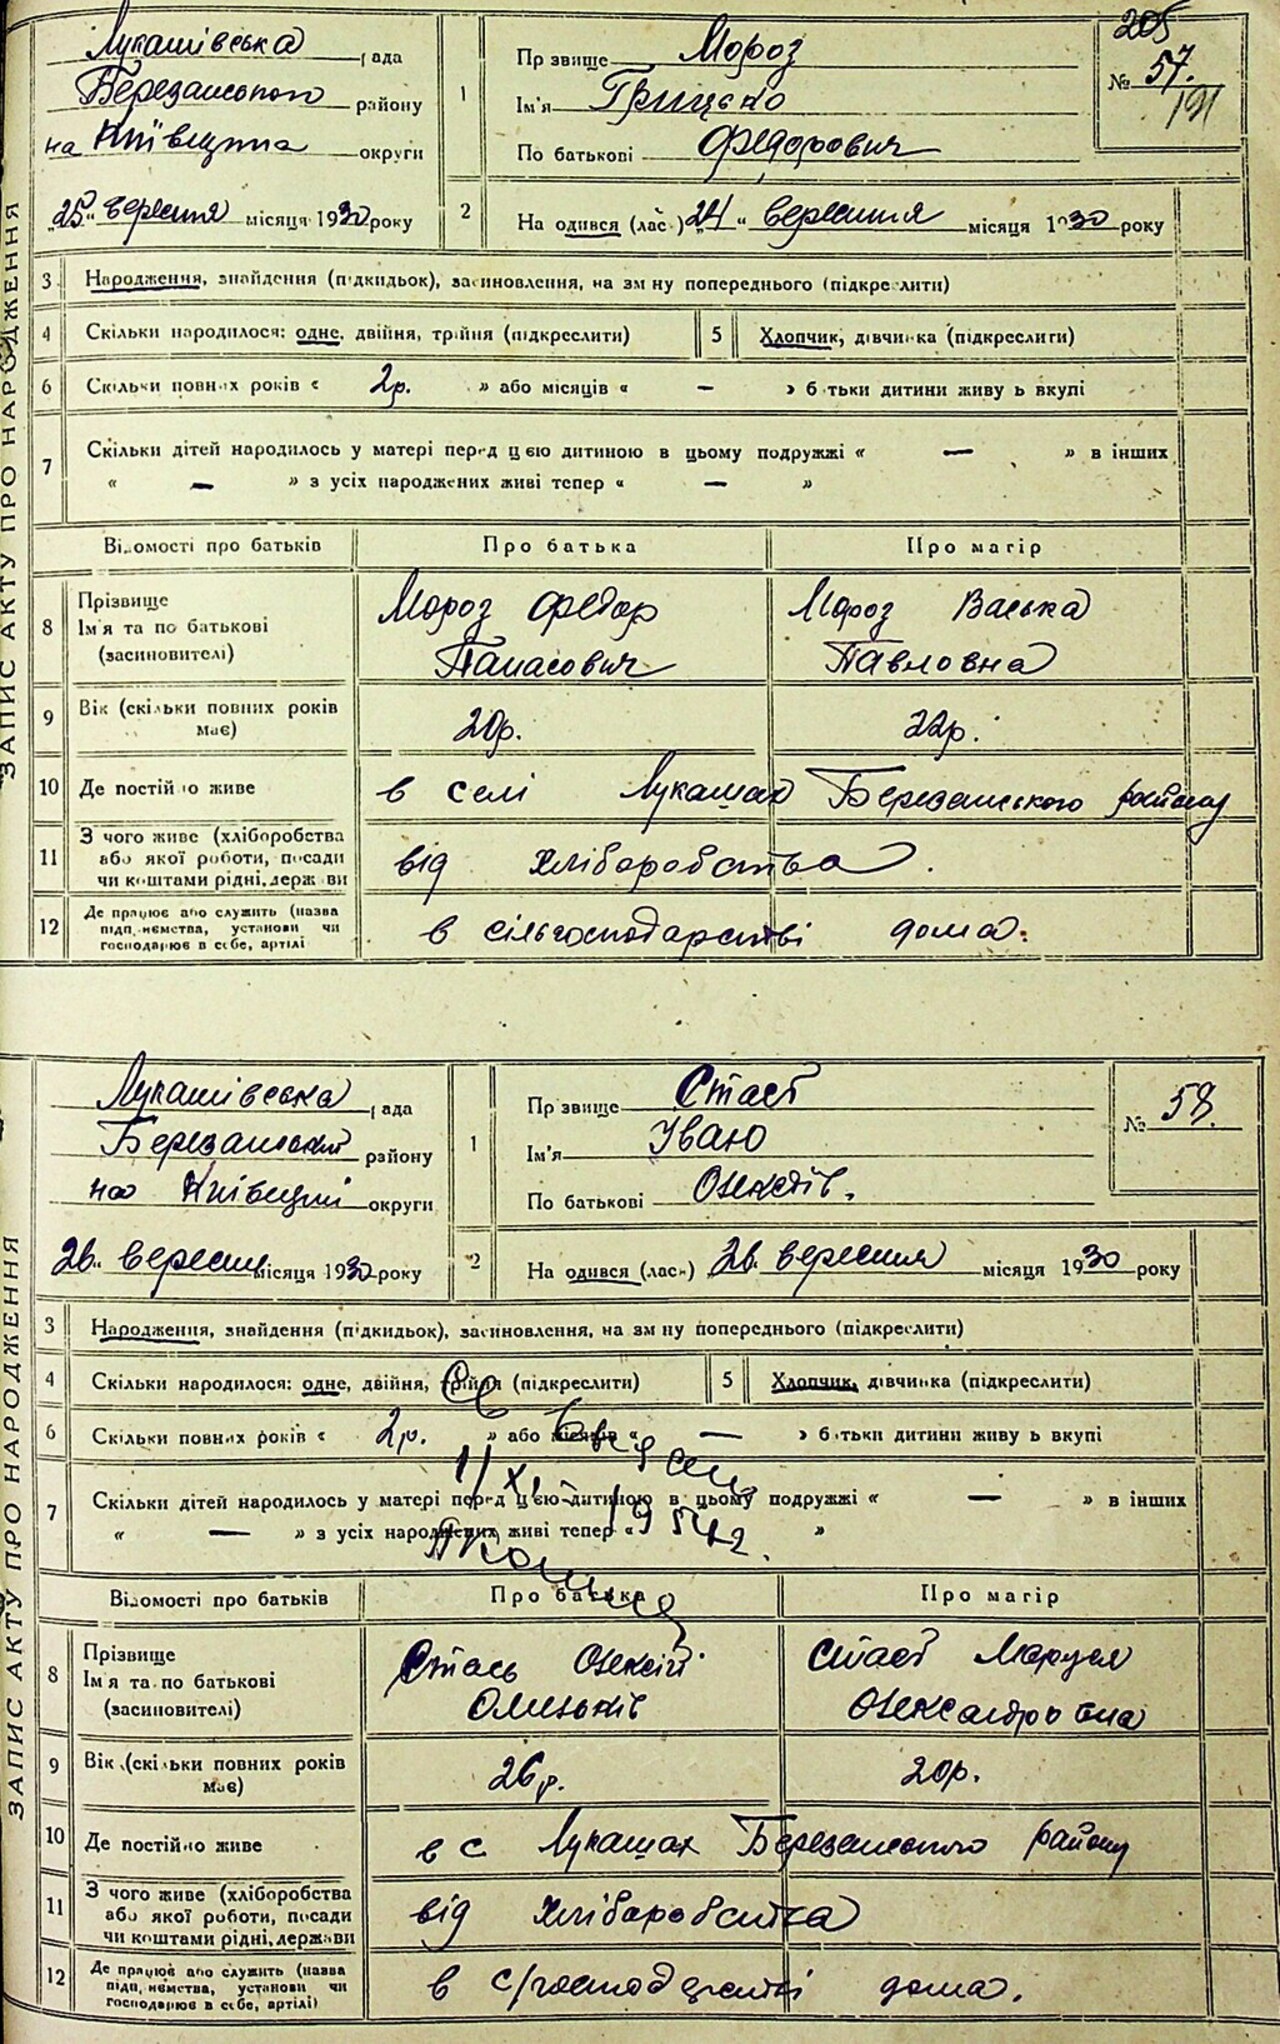 ЗАПИС АКТУ ПРО НАРОДЖЕННЯ
Лукашівська рада
Березанського району
на Київщина округи
"25" вересня місяця 1930 року
1
Прізвище Мороз
Ім'я Грицько
По батькові Федорович
205
№ 57.
191
2
Народився (лась) "24" вересня місяця 1930 року
3 Народження, знайдення (підкидьок), засиновлення, на зміну попереднього (підкреслити)
4 Скільки народилося: одне, двійня, трійня (підкреслити) 5 Хлопчик, дівчинка (підкреслити)
6 Скільки повних років « 2р. » або місяців « — » батьки дитини живуть вкупі
7 Скільки дітей народилось у матері перед цією дитиною в цьому подружжі « — » в інших
« — » з усіх народжених живі тепер « — »
Відомості про батьків Про батька Про матір
8 Прізвище Ім'я та по батькові (засиновителі)
Мороз Федор Панасович
Мороз Васька Павловна
9 Вік (скільки повних років має) 20р. 22р.
10 Де постійно живе в селі Лукашах Березанського району
11 З чого живе (хліборобства або якої роботи, посади чи коштами рідні, держави від хліборобства.
12 Де працює або служить (назва підприємства, установи чи господарює в себе, артілі в сільгосподарстві дома.
ЗАПИС АКТУ ПРО НАРОДЖЕННЯ
Лукашівська рада
Березанський району
на Київщині округи
26" вересня місяця 1930 року
1
Прізвище Стась
Ім'я Іваю
По батькові Олексіїв.
№ 58.
2
Народився (лась) 26. вересня місяця 1930 року
3 Народження, знайдення (підкидьок), засиновлення, на зміну попереднього (підкреслити)
4 Скільки народилося: одне, двійня, трійня (підкреслити) 5 Хлопчик, дівчинка (підкреслити)
6 Скільки повних років « 2р. » або місяців « — » батьки дитини живуть вкупі
7 Скільки дітей народилось у матері перед цією дитиною в цьому подружжі « — » в інших
« — » з усіх народжених живі тепер « »
11/XI 1954 г.
Відомості про батьків Про батька Про матір
8 Прізвище Ім'я та по батькові (засиновителі)
Стась Олексій
Стась Маруся Олександровна
9 Вік (скільки повних років має) 26р. 20р.
10 Де постійно живе в с Лукашах Березанського району
11 З чого живе (хліборобства або якої роботи, посади чи коштами рідні, держави від хліборобства
12 Де працює або служить (назва підприємства, установи чи господарює в себе, артілі) в с/господарстві дома.